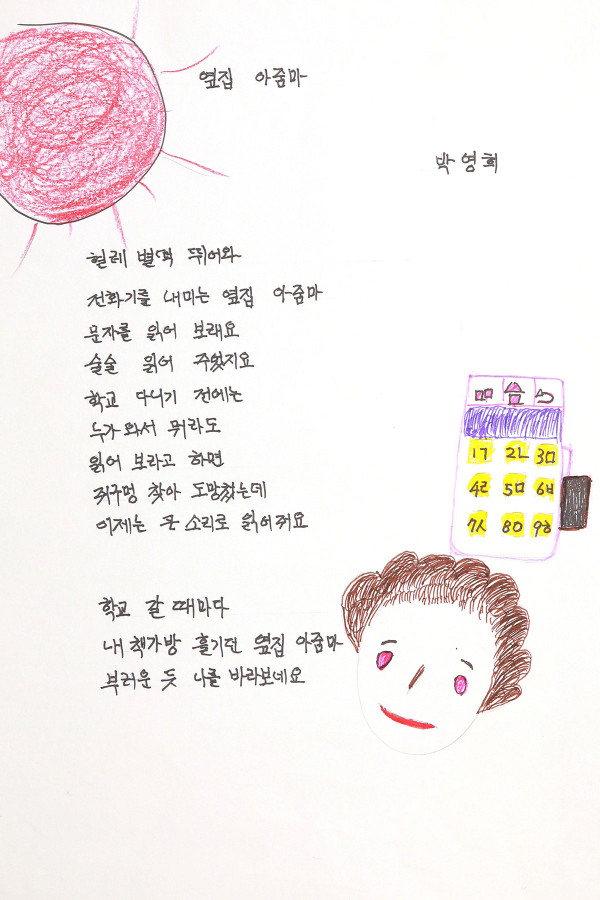 옆집 아줌마
박영희
헐레 벌떡 뛰어와
전화기를 내미는 옆집 아줌마
문자를 읽어 보래요
술술 읽어 주었지요
학교 다니기 전에는
누가 와서 뭐라도
읽어 보라고 하면
쥐구멍 찾아 도망쳤는데
이제는 큰 소리로 읽어줘요
학교 갈 때마다
내 책가방 흘기던 옆집 아줌마
부러운 듯 나를 바라보네요
1ㄱ 2ㄴ 3ㅁ
4ㄹ 5ㅁ 6ㅂ
7人 8ㅁ 9ㅎ